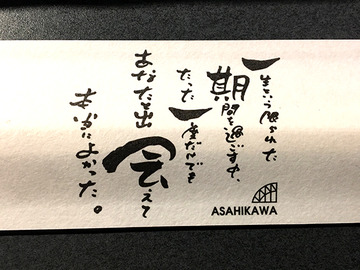 一生という限られた
期間を過ごす中、
たった一度だけでも
あなたと出会えて
本当によかった。
ASAHIKAWA